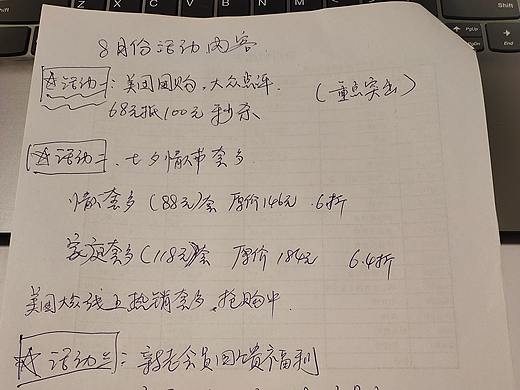 8月份活动内容
☆活动一:美团团购,大众点评. (重点突出)
68元抵100元 秒杀
☆活动二、七夕情人节套餐.
情侣套餐(88元)套 原价146元 .6折
家庭套餐(118元)套 原价184元 6.4折
美团大众线上热销套餐,抢购中
☆活动三:新老会员回馈福利
Shift
PgUp
PgDn